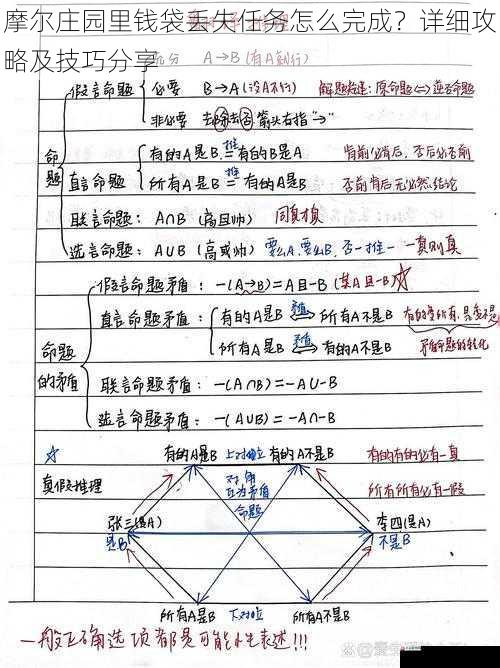 摩尔庄园里钱袋丢失任务怎么完成？详细攻
略及技巧分享
充分 A→B (有A则行)
假言命题 必要 B→A (没A不行) 解题技法：原命题⇔逆否命题
非必要 去 除去否 箭头右指"→"
命题 直言命题 有的A是B 推 有的B是A 肯前必肯后，否后必否前
所有A是B 推 有的B是A 否前肯后无必然结论
联言命题： A∩B (高且帅) 同真才真
选言命题： A∪B (高或帅) 要么A，要么B，否一推一 一真则真
命题的矛盾 假言命题矛盾： -(A→B)=A且-B (某A且-B) ☆
直言命题矛盾： 有的A是B 矛盾 所有A不是B
所有A是B 矛盾 有的A不是B 矛盾命题的转化
联言命题矛盾： -(A∩B)=-A∪-B
选言命题矛盾： -(A∪B)=-A∩-B
☆ 有的A是B 上对立 有的A不是B 有的有的必有一真
真假推理 对角互为矛盾命题 所有所有必有一假
张三(是A)是B 李四(是A)不是B
所有A是B 下对立 所有A不是B
一般正确选项都是可能性表述!!!